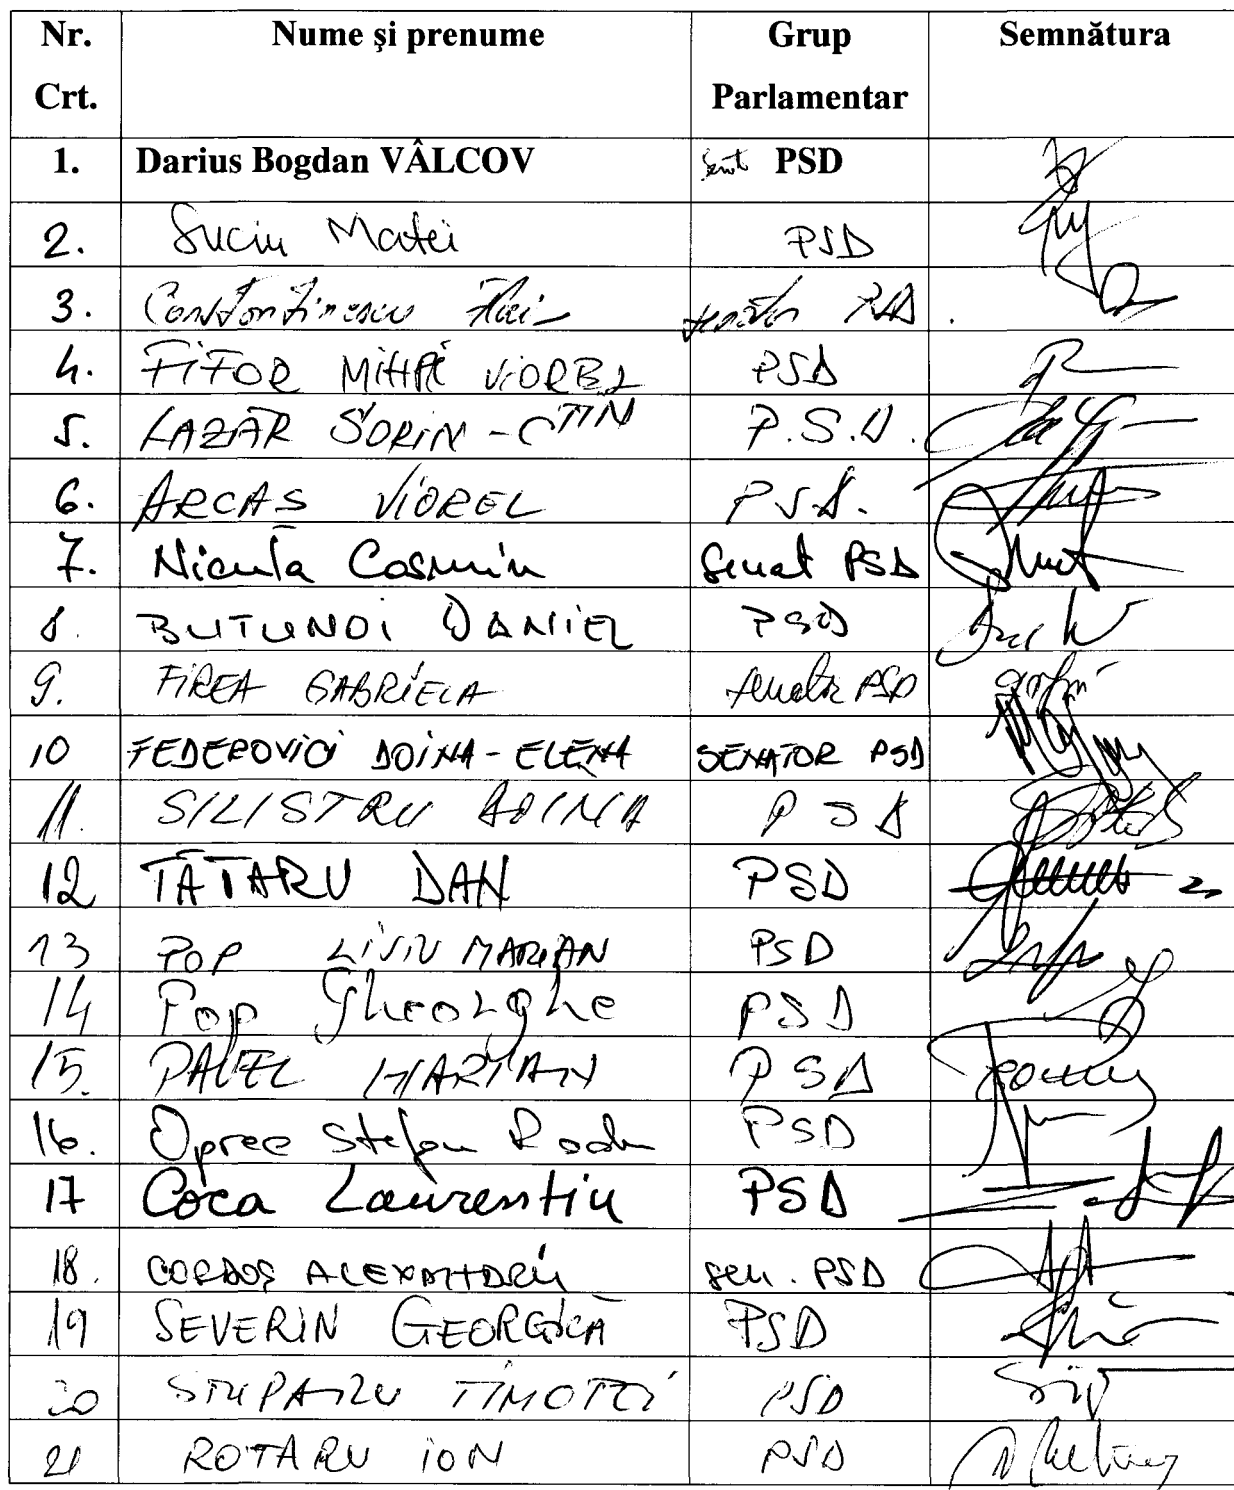 Nr. Crt. Nume şi prenume Grup Parlamentar Semnătura
1. Darius Bogdan VÂLCOV PSD
2. Suciu Matei PSD
3. Constantinescu senator PSD
4. FIFOR MIHAI VIOREL PSD
5. LAZĂR SORIN-CTIN P.S.D.
6. ARCAS VIOREL PSD.
7. Niculă Cosmin Senat PSD
8. BUTUNOI DANIEL PSD
9. FIREA GABRIELA senator PSD
10 FEDEROVICI DOINA-ELENA SENATOR PSD
11. SILISTRU DOINA PSD
12 TĂTARU DAN PSD
13 POP LIVIU MARIAN PSD
14 Pop Gheorghe PSD
15. PAVEL MARIAN PSD
16. Oprea Stefan Radu PSD
17 Coca Laurentiu PSD
18. CORDOŞ ALEXANDRU sen. PSD
19 SEVERIN GEORGICĂ PSD
20 STUPARU TIMOTEI PSD
21 ROTARU ION PSD